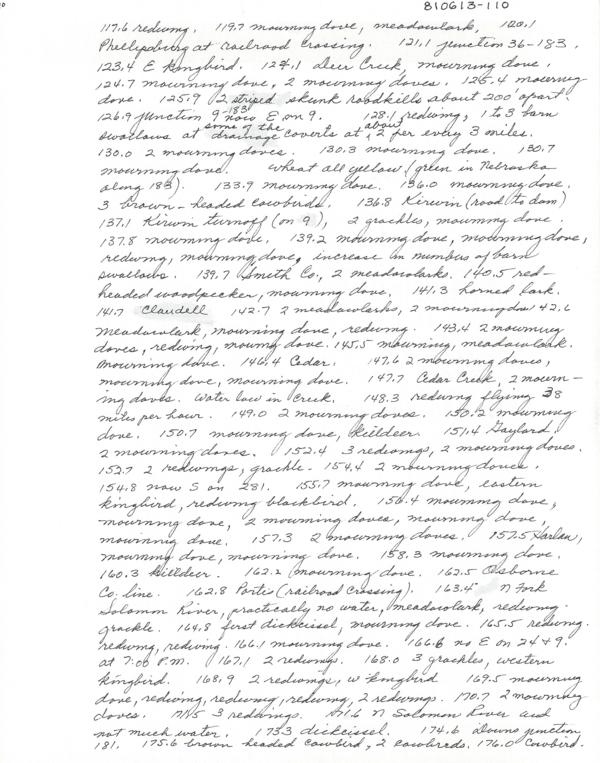 810613-110
117.6 redwing. 119.7 mourning dove, meadowlark, 120.1
Phillipsburg at railroad crossing. 121.1 junction 36-183.
123.4 E kingbird. 124.1 Deer Creek, mourning dove.
124.7 mourning dove, 2 mourning doves. 125.4 mourning
dove. 125.9 2 striped skunk roadkills about 200' apart.
126.9 junction 9-183 now E on 9. 128.1 redwing, 1 to 3 barn
swallows at some of the drainage coverts at about 2 per every 3 miles.
130.0 2 mourning doves. 130.3 mourning dove. 130.7
mourning dove. Wheat all yellow (green in Nebraska
along 183). 133.9 mourning dove. 136.0 mourning dove.
3 brown-headed cowbirds. 136.8 Kirwin (road to dam)
137.1 Kirwin turnoff (on 9), 2 grackles, mourning dove.
137.8 mourning dove. 139.2 mourning dove, mourning dove,
redwing, mourning dove, increase in numbers of barn
swallows. 139.7 Smith Co., 2 meadowlarks. 140.5 red-
headed woodpecker, mourning dove. 141.3 horned lark.
141.7 Claudell 142.7 2 meadowlarks, 2 mourning dove 142.6
meadowlark, mourning dove, redwing. 143.4 2 mourning
doves, redwing, mourng dove. 145.5 mourning, meadowlark.
mourning dove. 146.4 Cedar. 147.6 2 mourning doves,
mourning dove, mourning dove. 147.7 Cedar Creek, 2 mourn-
ing doves. Water low in creek. 148.3 redwing flying 38
miles per hour. 149.0 2 mourning doves. 150.2 mourning
dove. 150.7 mourning dove, killdeer. 151.4 Gaylord.
2 mourning doves. 152.4 3 redwings, 2 mourning doves.
152.7 2 redwings, grackle. 154.4 2 mourning doves.
154.8 now S on 281. 155.7 mourning dove, eastern
kingbird, redwing blackbird. 156.4 mourning dove,
mourning dove, 2 mourning doves, mourning dove,
mourning dove. 157.3 2 mourning doves. 157.5 Harlan,
mourning dove, mourning dove. 158.3 mourning dove.
160.3 killdeer. 162.2 mourning dove. 162.5 Osborne
Co. line. 162.8 Portis (railroad crossing). 163.4 N Fork
Solomon River, practically no water, meadowlark, redwing.
grackle. 164.8 first dickcissel, mourning dove. 165.5 redwing.
redwing, redwing. 166.1 mourning dove. 166.6 no E on 24 & 9.
at 7:00 P.M. 167.1 2 redwings. 168.0 3 grackles, western
kingbird. 168.9 2 redwings, w kingbird 169.5 mourning
dove, redwing, redwing, redwing, 2 redwings. 170.7 2 mourning
doves. 3 redwings. N Solomon River and
not much water. 173.3 dickcissel. 174.6 Downs junction
181. 175.6 brown headed cowbird, 2 cowbirds. 176.0 cowbird.